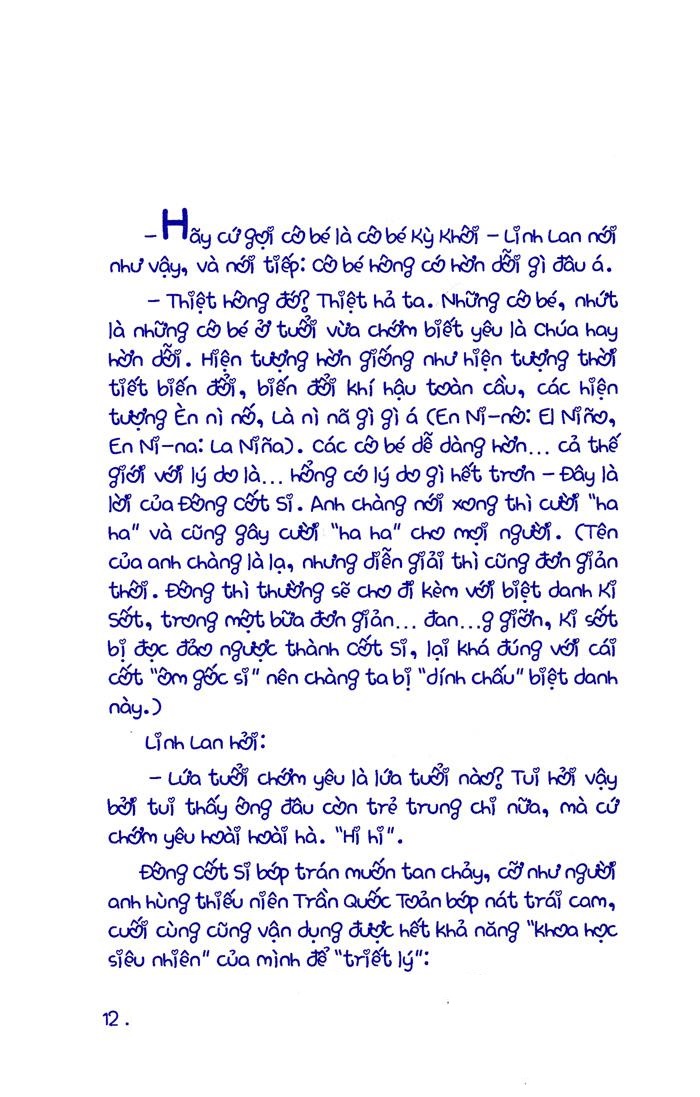 – Hãy cứ gọi cô bé là cô bé Kỳ Khôi – Linh Lan nói
như vậy, và nói tiếp: Cô bé hông có hờn dỗi gì đâu á.
– Thiệt hông đó? Thiệt hả ta. Những cô bé, nhứt
là những cô bé ở tuổi vừa chớm biết yêu là Chúa hay
hờn dỗi. Hiện tượng hờn giống như hiện tượng thời
tiết biến đổi, biến đổi khí hậu toàn cầu, các hiện
tượng Èn nì nố, Là nì nã gì gì á (En Ni-nô: El Niño,
En Ni-na: La Niña). Các cô bé dễ dàng hờn... cả thế
giới với lý do là... hổng có lý do gì hết trơn – Đây là
lời của Đông Cốt Si. Anh chàng nói xong thì cười "ha
ha" và cũng gây cười "ha ha" cho mọi người. (Tên
của anh chàng là lạ, nhưng diễn giải thì cũng đơn giản
thôi. Đông thì thường sẽ cho đi kèm với biệt danh Ki
Sốt, trong một bữa đơn giản... đan...g giỡn, Ki Sốt
bị đọc đảo ngược thành Cốt Si, lại khá đúng với cái
cốt "ôm gốc si" nên chàng ta bị "dính chấu" biệt danh
này.)
Linh Lan hỏi:
– Lứa tuổi chớm yêu là lứa tuổi nào? Tui hỏi vậy
bởi tui thấy ông đâu còn trẻ trung chi nữa, mà cứ
chớm yêu hoài hoài hà. "Hi hi".
Đông Cốt Si bóp trán muốn tan chảy, cỡ như người
anh hùng thiếu niên Trần Quốc Toản bóp nát trái cam,
cuối cùng cũng vận dụng được hết khả năng "khoa học
siêu nhiên" của mình để "triết lý":
12 .